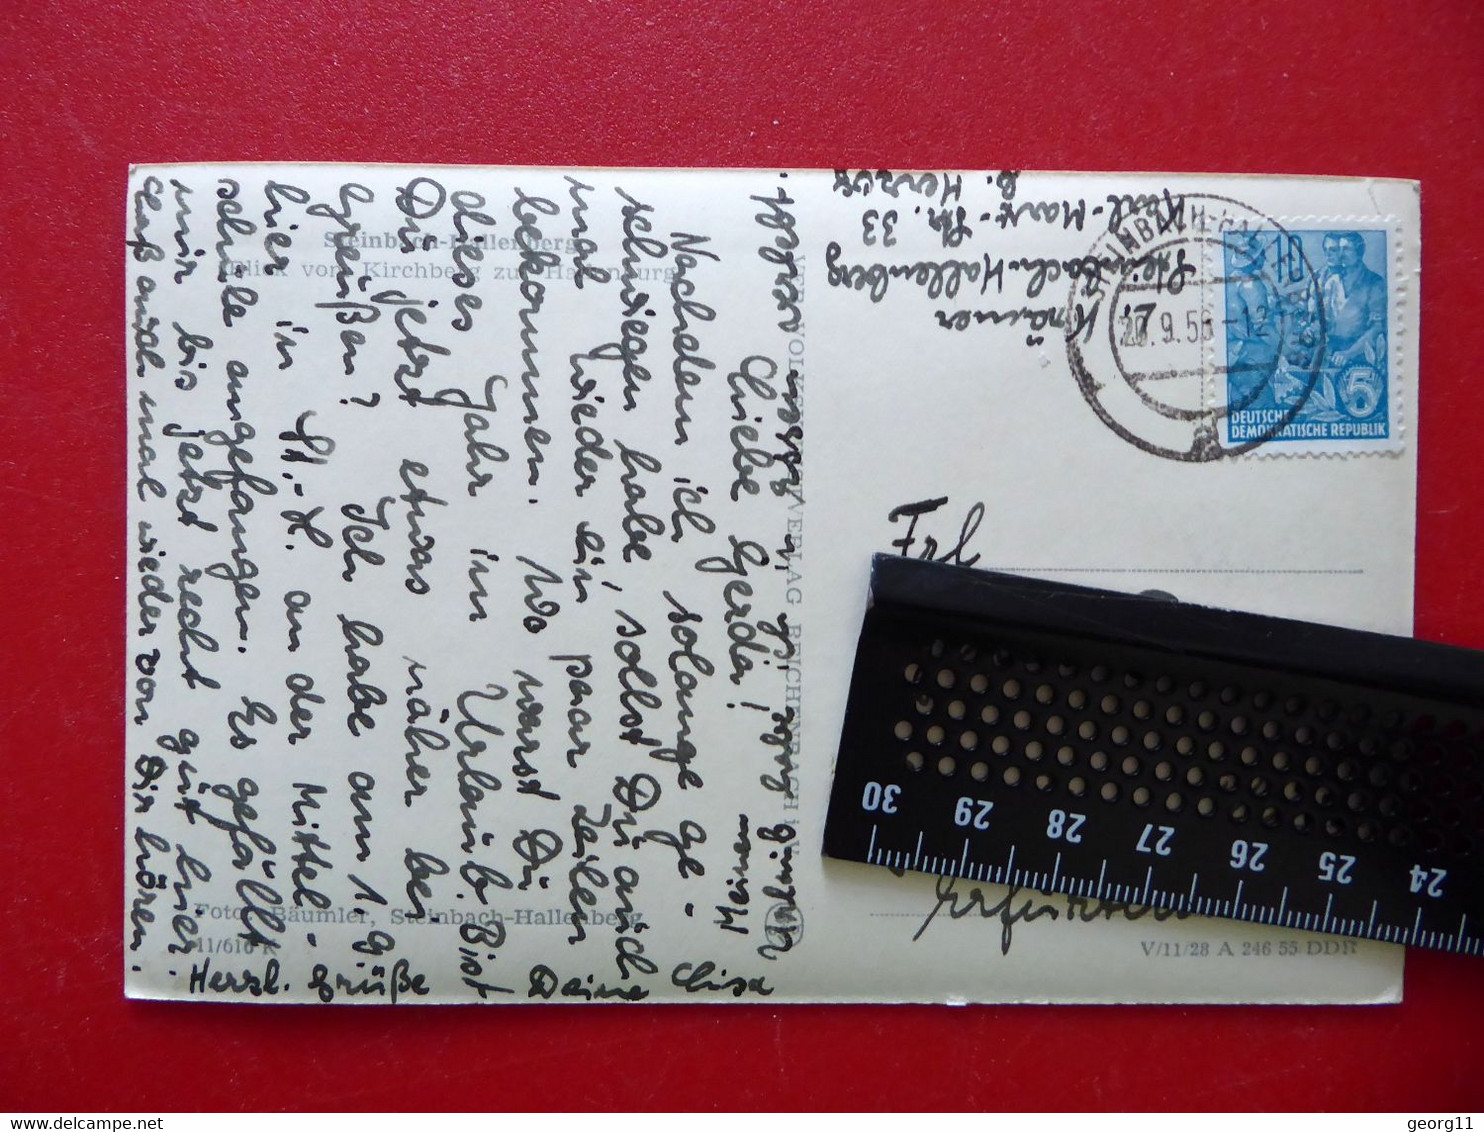 Steinbach-Hallenberg
Blick vom Kirchberg zur Hallenburg
Liebe Gerda!
Nachdem ich solange ge-
schwiegen habe, sollst Du auch
mal wieder ein paar Zeilen
bekommen. Wo warst Du
dieses Jahr im Urlaub. Bist
Du jetzt etwas näher bei
Greußen? Ich habe am 1.9.
hier in St.-H. an der Mittel-
schule angefangen. Es gefällt
mir bis jetzt recht gut hier.
Laß auch mal wieder von Dir hören.
Herzl. Grüße Deine Elisa
Foto: Bäumler, Steinbach-Hallenberg
11/616 K
VERLAG REICHENBACH
Krämer
Steinbach-Hallenberg
Karl-Marx-Str. 33
b. Herzog
STEINBACH-HALLENBERG
20.9.56-12
10
5
DEUTSCHE
DEMOKRATISCHE REPUBLIK
Frl
V/11/28 A 246 55 DDR
30 29 28 27 26 25 24
georg11